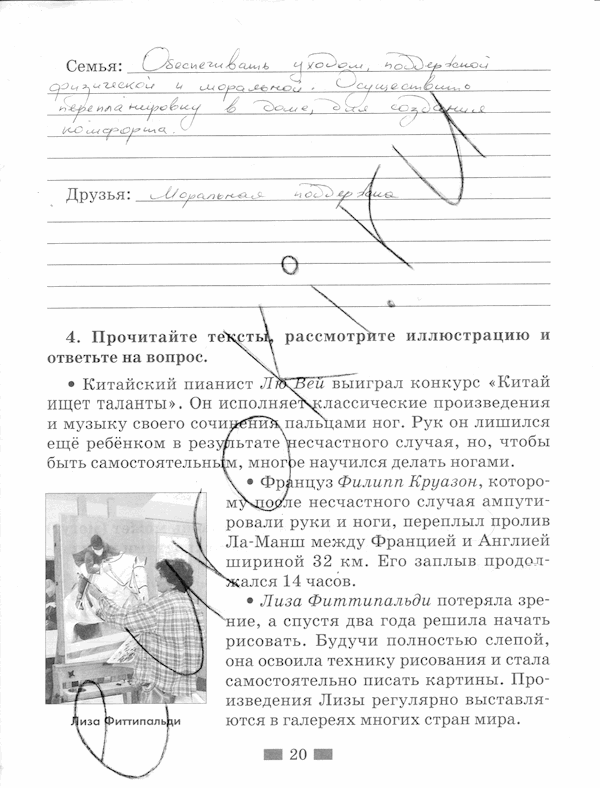 Семья: Обеспечивать уходом, поддержкой
физической и моральной. Осуществить
перепланировку в доме, для создания
комфорта.
Друзья: Моральная поддержка
4. Прочитайте тексты, рассмотрите иллюстрацию и
ответьте на вопрос.
• Китайский пианист Лю Вей выиграл конкурс «Китай
ищет таланты». Он исполняет классические произведения
и музыку своего сочинения пальцами ног. Рук он лишился
ещё ребёнком в результате несчастного случая, но, чтобы
быть самостоятельным, многое научился делать ногами.
• Француз Филипп Круазон, которо-
му после несчастного случая ампути-
ровали руки и ноги, переплыл пролив
Ла-Манш между Францией и Англией
шириной 32 км. Его заплыв продол-
жался 14 часов.
• Лиза Фиттипальди потеряла зре-
ние, а спустя два года решила начать
рисовать. Будучи полностью слепой,
она освоила технику рисования и стала
самостоятельно писать картины. Про-
изведения Лизы регулярно выставля-
ются в галереях многих стран мира.
Лиза Фиттипальди
20